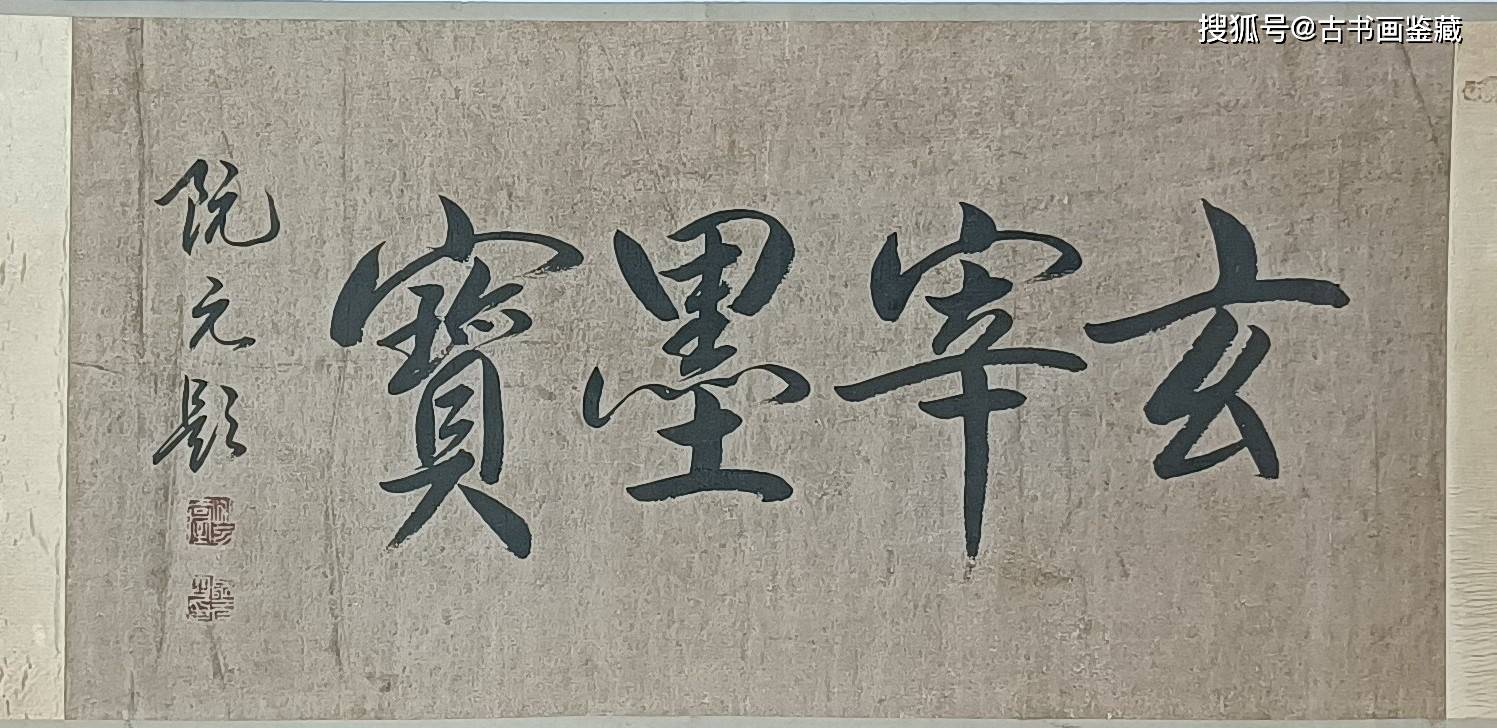 搜狐号@古书画鉴藏
玄宰墨寶
阮元題